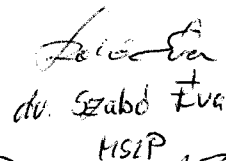 dr. Szabó Éva
MSZP